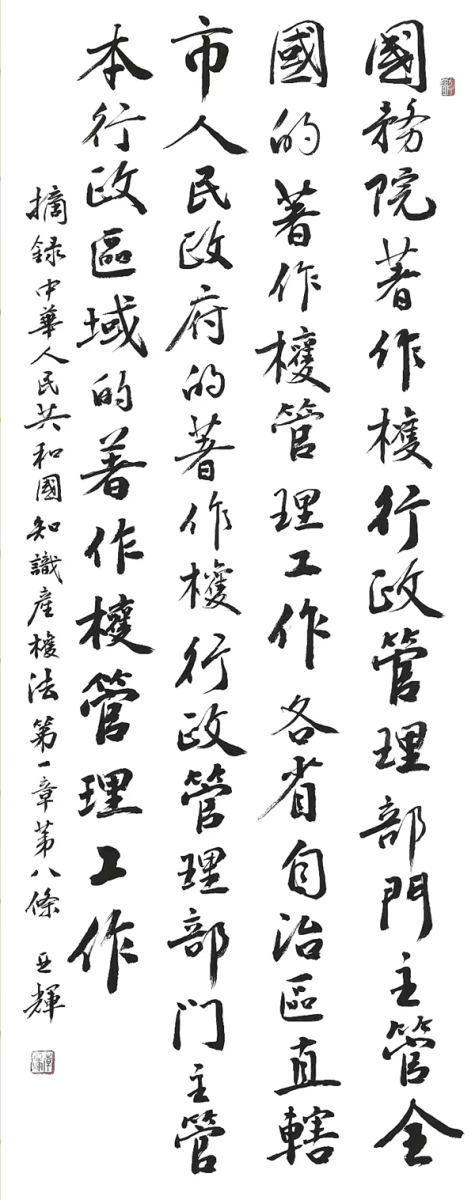 國務院著作權行政管理部門主管全
國的著作權管理工作各省自治區直轄
市人民政府的著作權行政管理部门主管
本行政區域的著作權管理工作
摘録中華人民共和國知識產權法第一章第八條 亞輝